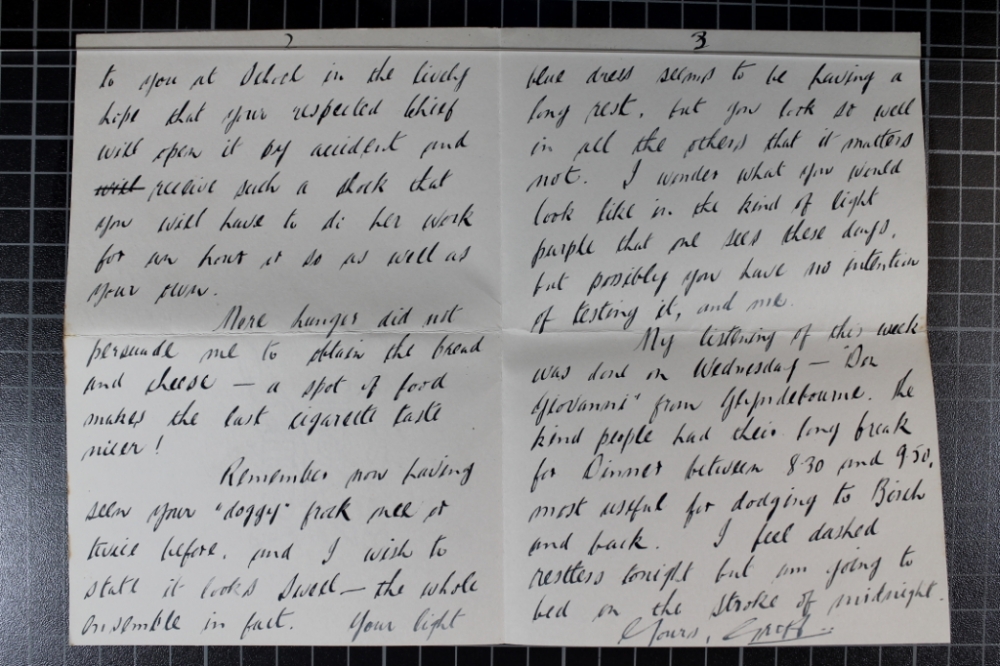 2
to you at School in the lively
hope that your respected Chief
will open it by accident and
will receive such a shock that
you will have to do her work
for an hour or so as well as
your own.
Mere hunger did not
persuade me to obtain the bread
and cheese — a spot of food
makes the last cigarette taste
nicer!
Remember now having
seen your "doggy" frock once or
twice before, and I wish to
state it looks swell — the whole
ensemble in fact. Your light
3
blue dress seems to be having a
long rest, but you look so well
in all the others that it matters
not. I wonder what you would
look like in the kind of light
purple that one sees these days,
but possibly you have no intention
of testing it, and me.
My listening of this week
was done on Wednesday — "Don
Giovanni" from Glyndebourne. The
kind people had their long break
for Dinner between 8.30 and 9.50,
most useful for dodging to Birch
and back. I feel dashed
restless tonight but am going to
bed on the stroke of midnight.
Yours, Geoff.